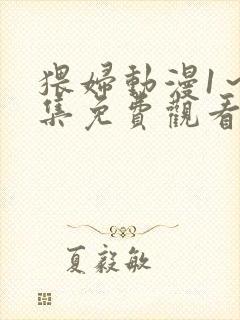 猥婦動漫1~
集免費觀看
夏毅敏